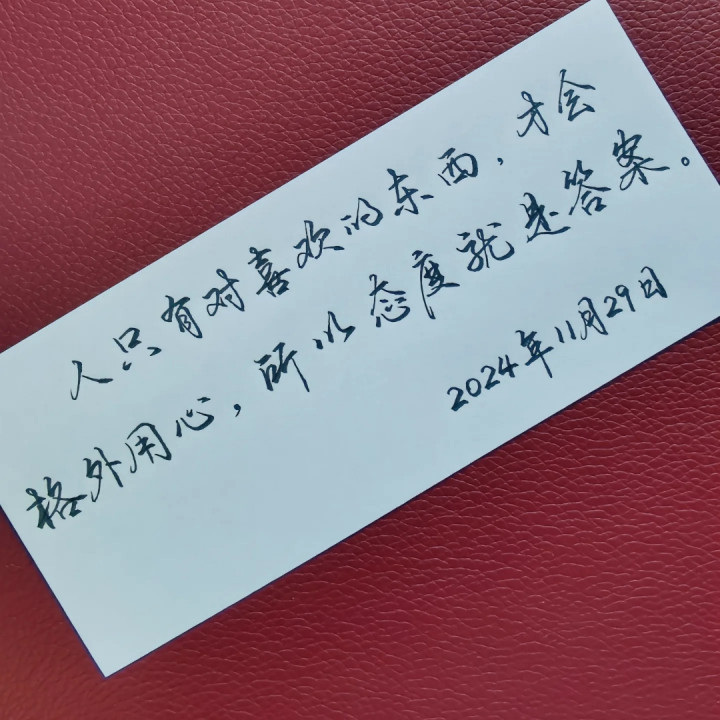 人只有对喜欢的东西，才会
格外用心，所以态度就是答案。
2024年11月29日